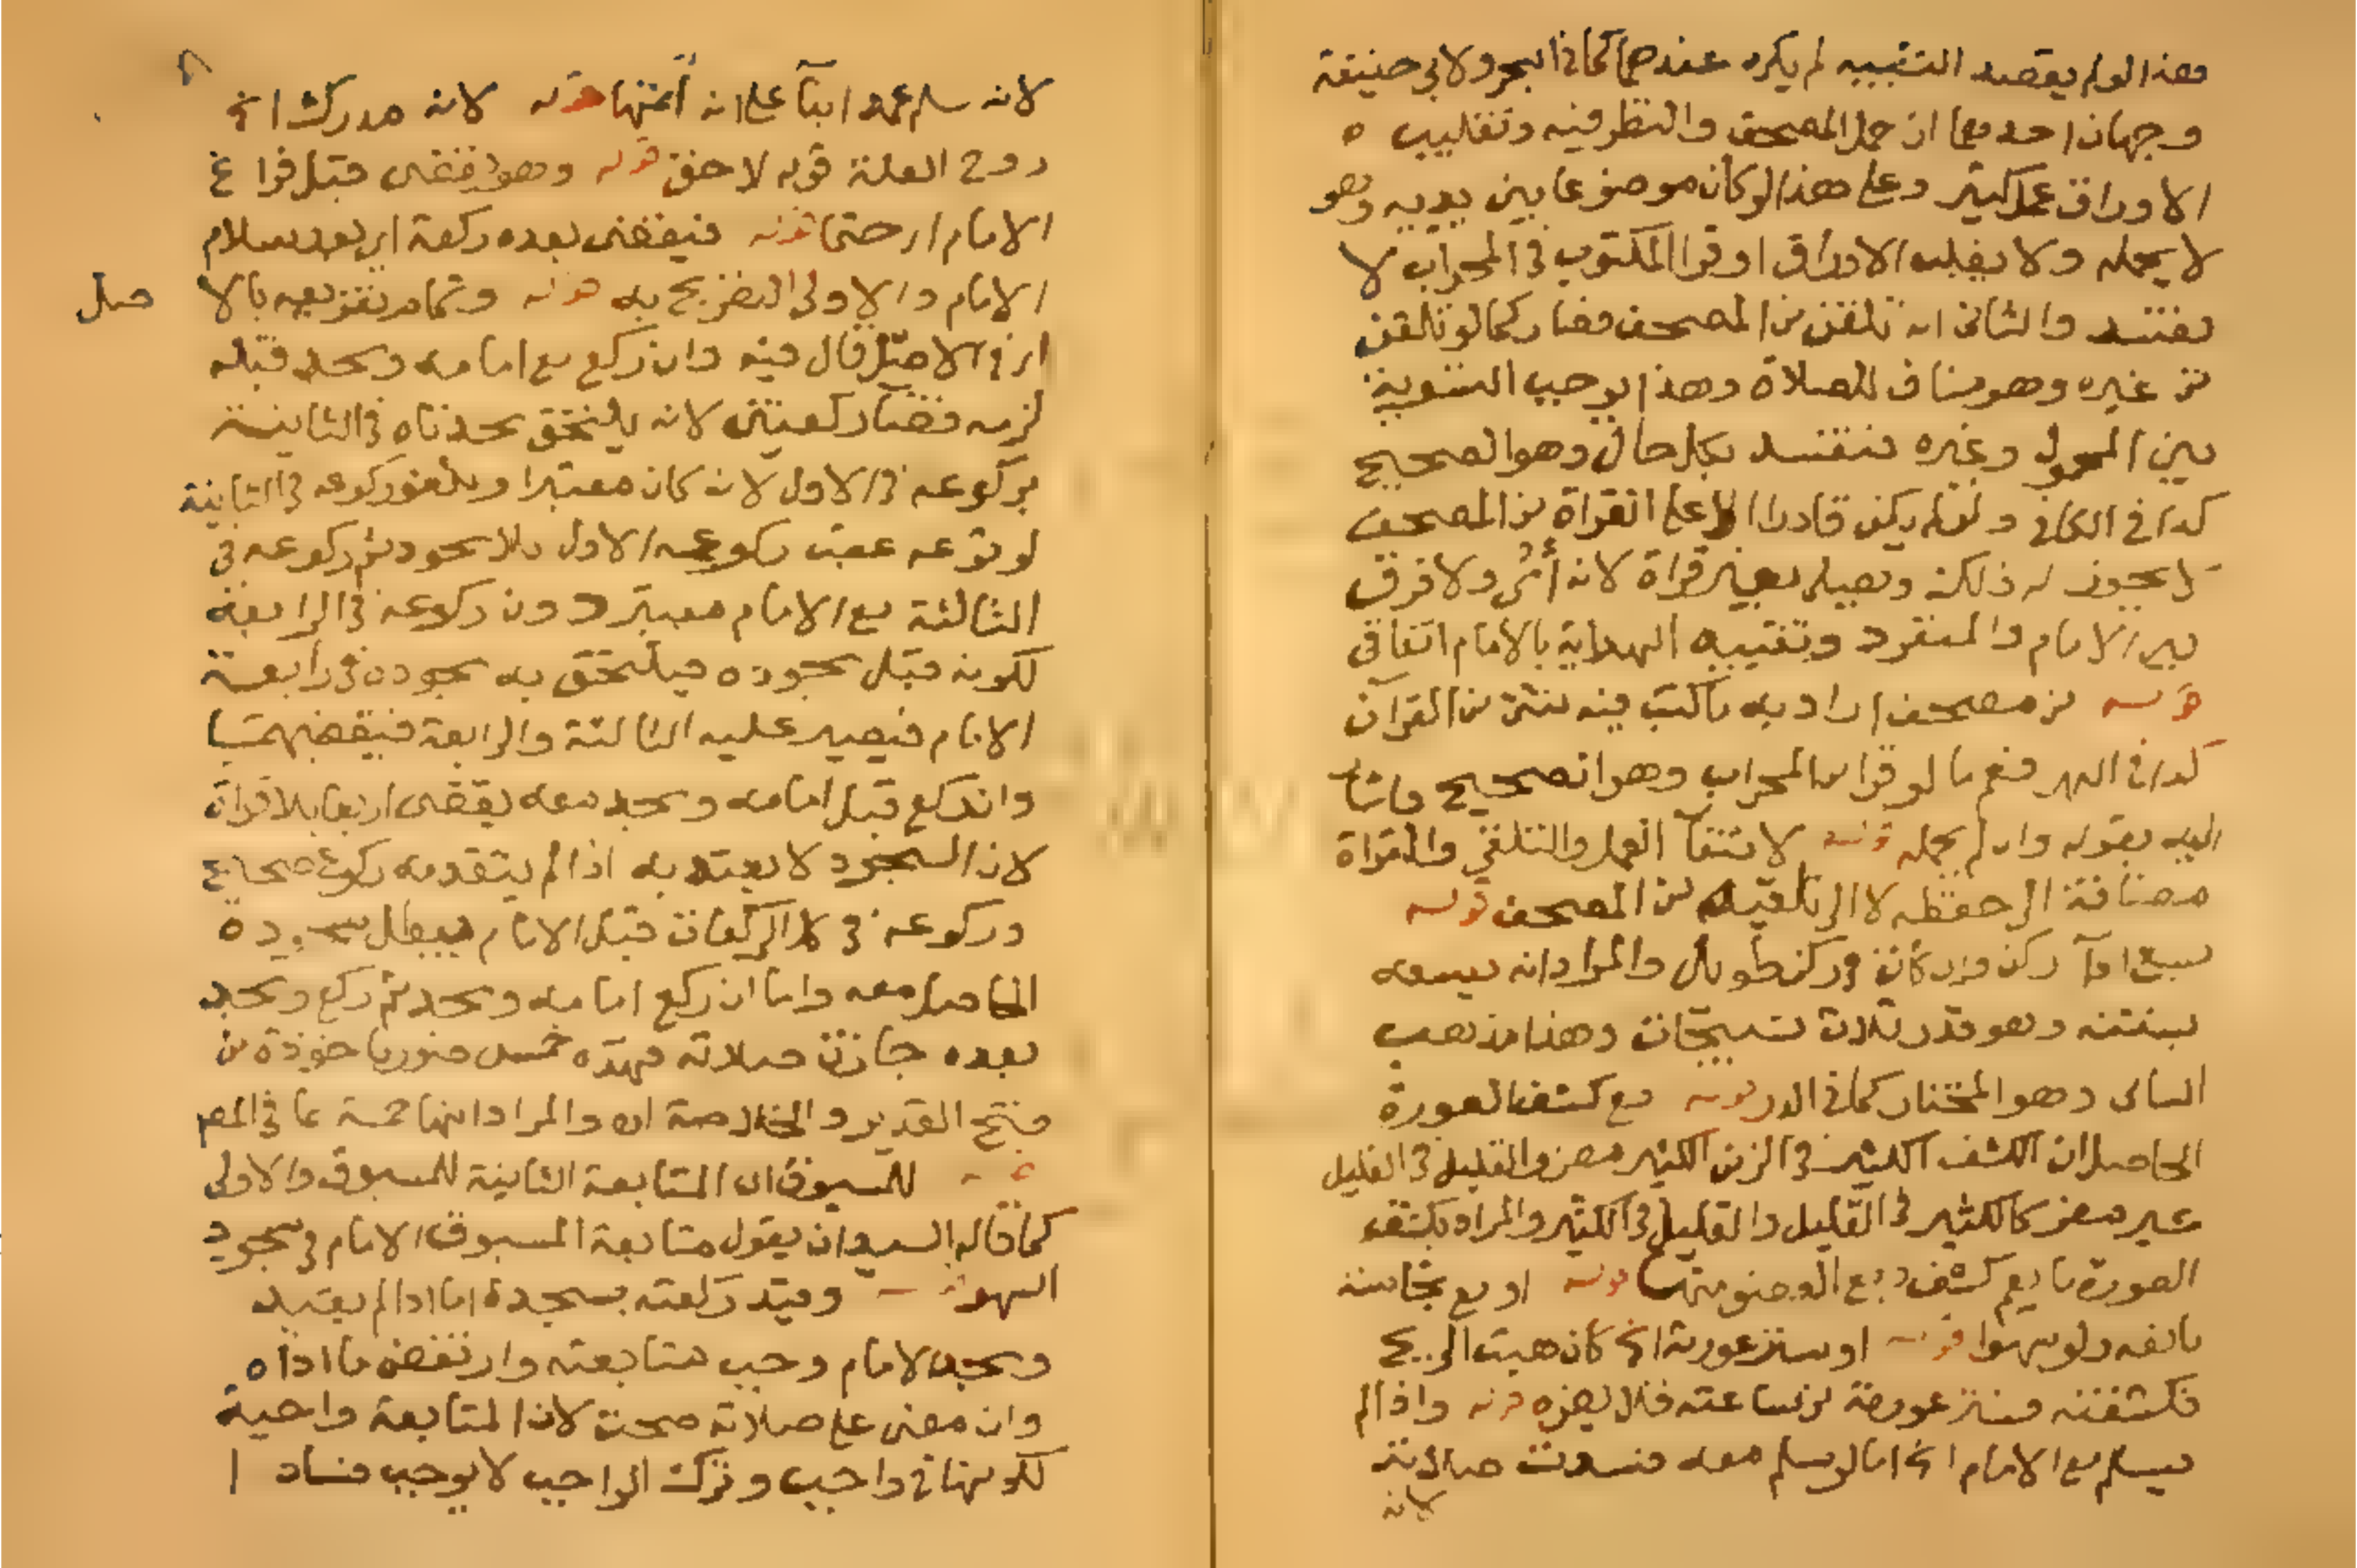 فعذا لو لم يقصد التشبيه لم يكره عندهما كما في البحر ولابي حنيفة
وجهان احدهما ان حمل المصحف والنظر فيه وتقليب ه
الاوراق عمل كثير وعلى هذا لو كان موضوعا بين يديه وهو
لا يحمله ولا يقلب الاوراق او قرا المكتوب في المحراب لا
تفسد والثاني انه تلقن من المصحف فصار كما لو تلقن
من غيره وهو مناف للصلاة وهذا يوجب التسوية
بين المحمول وغيره فتفسد بكل حال وهو الصحيح
كذا في الكافي ولو لم يكن قادرا الا على القراة من المصحف
لا يجوز له ذلك ويصلي بغير قراة لانه أُمّى ولا فرق
بين الامام والمنفرد وتقييد الهداية بالامام اتفاقي
قوله من مصحف اراد به ما كتب فيه شئ من القرآن
كذا في النهر فعم ما لو قرا من المحراب وهو الصحيح واشار
اليه بقوله وان لم يحمله قوله لانتفآ العمل والتلقن والقراة
مضافة الى حفظه لا الى تلقيه من المصحف قوله
يسع ادآ ركن وان كان في ركن طويل والمراد انه يسعه
بسنته وهو قدر ثلاث تسبيحات وهذا مذهب
الثاني وهو المختار كما في الدر قوله مع كشف العورة
الحاصل ان الكشف الكثير في الزمن الكثير مضر والقليل في القليل
غير مضر كالكثير في القليل والقليل في الكثير والمراد بكشف
العورة ما يعم كشف ربع العضو منها قوله او مع نجاسة
مانعه ولو سهوا قوله او ستر عورة الخ كان هبت الريح
فكشفته فستر عورته من ساعته فلا يضره قوله واذا لم
يسلم مع الامام الخ اما لو سلم معه فسدت صلاته
لانه
لانه سلم عمدا بنآ على انه أتمها قوله لانه مدرك الخ
روح العلة قوله لاحق قوله وهو فيقضى قبل فراغ
الامام ارحتما قوله فيقضى بعده ركعة اي بعد سلام
الامام والاولى التصريح به قوله وتمام تفريعه بالا صل
اي في الاصل قال فيه وان ركع مع امامه وسجد قبله
لزمه قضا ركعتين لانه يلتحق سجدتاه في الثانية
بركوعه في الاول لانه كان معتبرا ويلغو ركوعه في الثانية
لوقوعه عقب ركوعه الاول بلا سجود ثم ركوعه في
الثالثة مع الامام معتبر دون ركوعه في الرابعة
لكونه قبل سجوده فيلتحق به سجوده في رابعة
الامام فيصير عليه الثالثة والرابعة فيقضيهما
وان ركع قبل امامه وسجد معه يقضى اربعا بلا قراة
لان السجود لا يعتد به اذا لم يتقدمه ركوع صحيح
وركوعه في كل الركعات قبل الامام يبطل سجوده
الحاصل معه واما ان ركع امامه وسجد ثم ركع وسجد
بعده جازت صلاته فهذه خمس صور ماخوذة من
فتح القدير والخلاصة اه والمراد انها خمسة بما في المص
للمسبوق اي المتابعة الثانية للمسبوق والاولى
كما قاله السيد ان يقول متابعة المسبوق الامام في سجود
السهو وقيد ركعته بسجدة اما اذا لم يقيد
وسجد الامام وجب متابعته وارتفض ما اداه
وان مضى على صلاته صحت لان المتابعة واجبة
لكونها في واجب وترك الواجب لا يوجب فساد ا